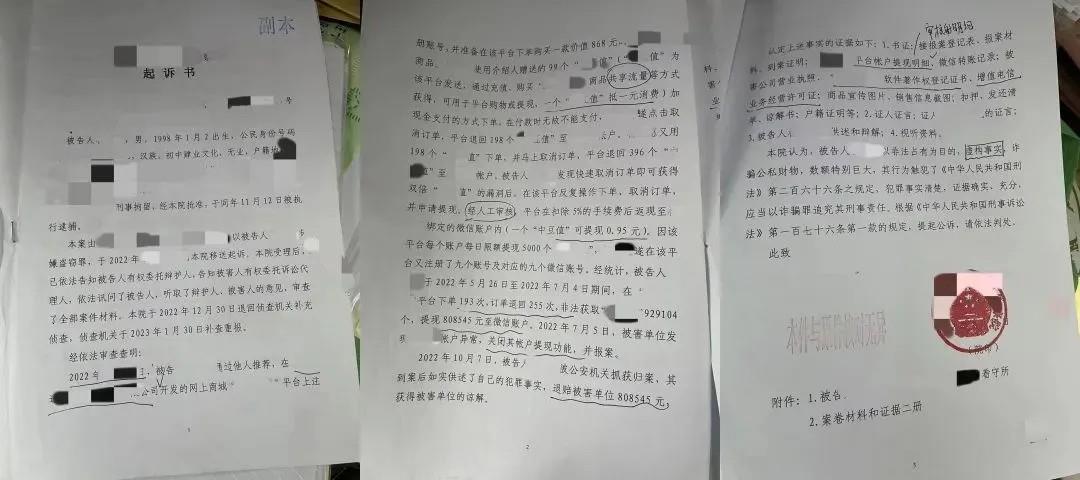 副本
起 诉 书
号
被告人,男,1998年1月2出生,公民身份号码
,汉族,初中肄业文化,无业,户籍地
刑事拘留,经本院批准,于同年11月12日被执
行逮捕。
本案由 以被告人 涉
嫌盗窃罪,于2022年 ,本院移送起诉。本院受理后,
已依法告知被告人有权委托辩护人,告知被害人有权委托诉讼代
理人,依法讯问了被告人,听取了辩护人、被害人的意见,审查
了全部案件材料。本院于2022年12月30日退回侦查机关补充
侦查,侦查机关于2023年1月30日补查重报。
经依法审查查明:
2022年 ,被告 通过他人推荐,在
公司开发的网上商城“ ”平台上注
1
册账号,并准备在该平台下单购买一款价值868元
商品。 使用介绍人赠送的99个“ 值”(“ 值”为
该平台发送,通过充值、购买“ 商品共享流量等方式
获得,可用于平台购物或提现,一个“ 值”抵一元消费)加
现金支付的方式下单。在付款时无故不能支付, 遂点击取
消订单,平台退回198个“ 值”至 帐户。 又用
198个“ 值”下单,并马上取消订单,平台退回396个“
值”至 帐户,被告人 发现快速取消订单即可获得
双倍“ 值”的漏洞后,在该平台反复操作下单、取消订单,
并申请提现,经人工审核,平台在扣除5%的手续费后返现至
绑定的微信账户内(一个“中豆值”可提现0.95元)。因该
平台每个账户每日限额提现5000个 ”, 遂在该平
台又注册了九个账号及对应的九个微信账号。经统计,被告人
于2022年5月26日至2022年7月4日期间,在“
平台下单193次,订单退回255次,非法获取“ 929104
个,提现808545元至微信账户。2022年7月5日,被害单位发
现 帐户异常,关闭其帐户提现功能,并报案。
2022年10月7日,被告 被公安机关抓获归案,其
到案后如实供述了自己的犯罪事实,退赔被害单位808545元,
获得被害单位的谅解。
2
认定上述事实的证据如下:1.书证:接报案登记表、报案材
料、到案证明; 平台帐户提现明细、微信转账记录;被
害公司营业执照、“ 软件著作权登记证书、增值电信
业务经营许可证;商品宣传图片、销售信息截图;扣押、发还清
单、谅解书;户籍证明等;2.证人证言:证人 的证言;
3.被告人 供述和辩解;4.视听资料。
本院认为,被告人 以非法占有为目的,虚构事实,诈
骗公私财物,数额特别巨大,其行为触犯了《中华人民共和国刑
法》第二百六十六条之规定,犯罪事实清楚,证据确实、充分,
应当以诈骗罪追究其刑事责任。根据《中华人民共和国刑事诉讼
法》第一百七十六条第一款的规定,提起公诉,请依法判处。
此致
本件与原件核对无异
看守所
附件:1.被告
2.案卷材料和证据二册
3